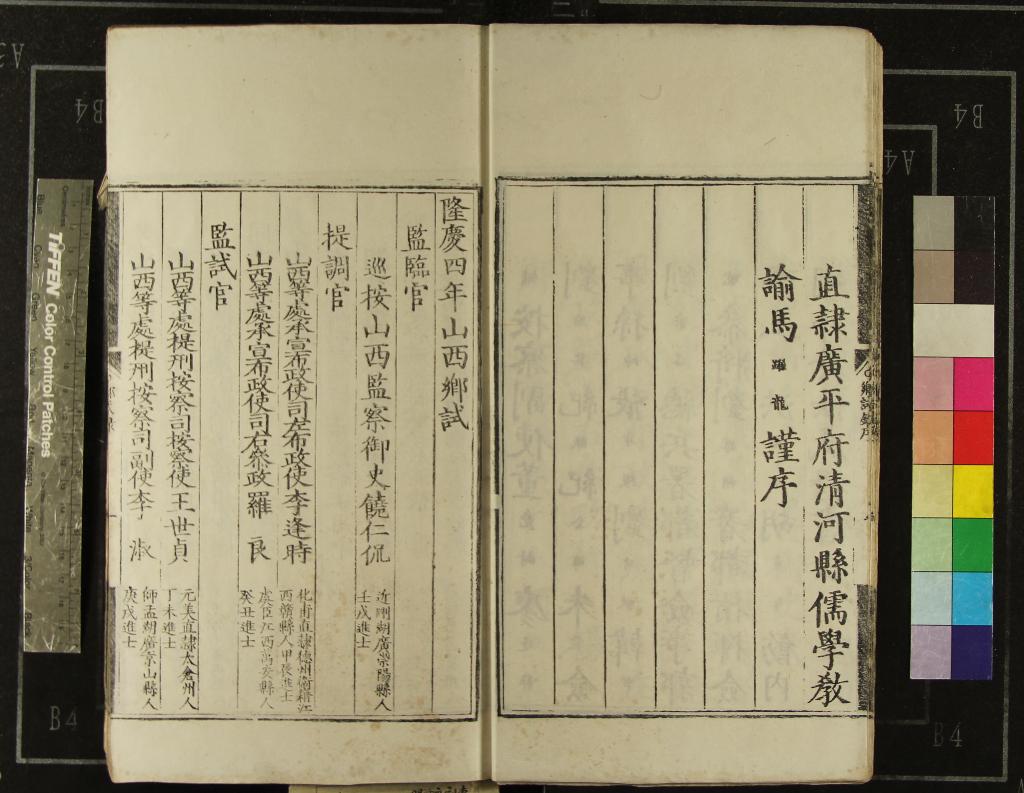 直隸廣平府清河縣儒學教
諭馬躍龍謹序
隆慶四年山西鄉試
監臨官
巡按山西監察御史饒仁侃
近剛湖廣崇陽縣人
壬戌進士
提調官
山西等處承宣布政使司左布政使李逢時
化甫直隸德州衛籍江
西贛縣人甲辰進士
山西等處承宣布政使司右叅政羅良
虞臣江西萬安縣人
癸丑進士
監試官
山西等處提刑按察司按察使王世貞
元美直隸太倉州人
丁未進士
山西等處提刑按察司副使李淑
師孟湖廣京山縣人
庚戌進士
TIFFEN Color Control Patches
B4
B4
A4
B4
B4